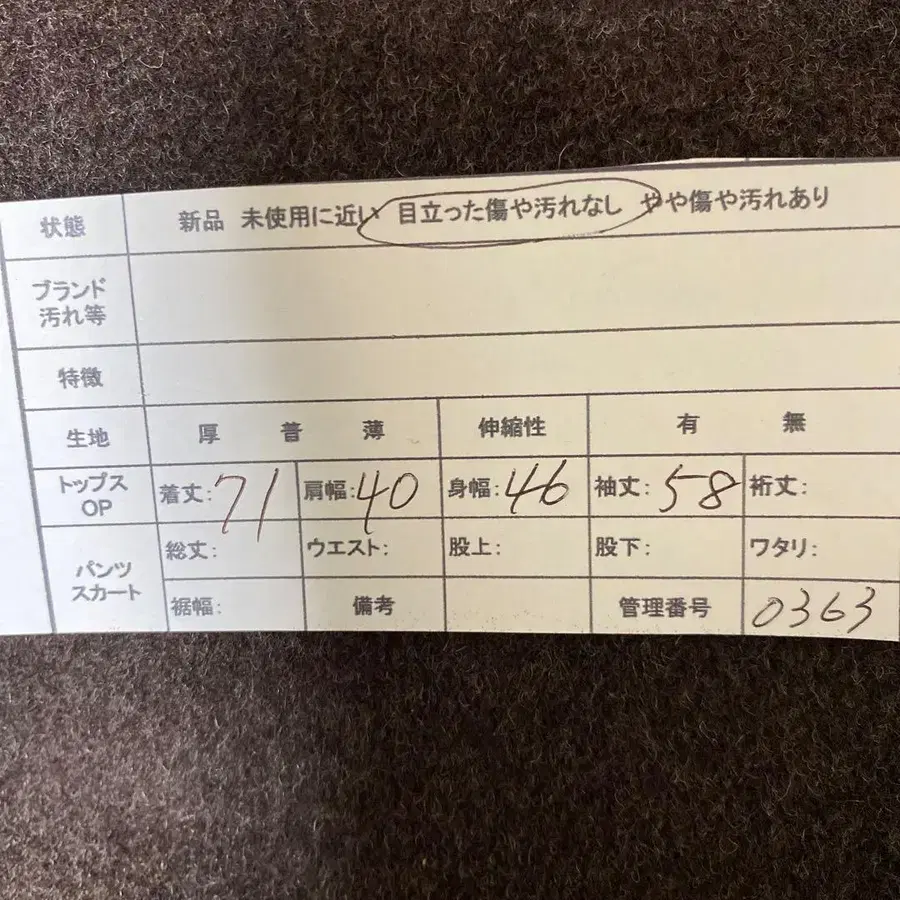 状態 新品 未使用に近い 目立った傷や汚れなし やや傷や汚れあり
ブランド
汚れ等
特徴
生地 厚 普 薄 伸縮性 有 無
トップス
OP
着丈:71 肩幅:40 身幅:46 袖丈:58 裄丈:
パンツ
スカート
総丈: ウエスト: 股上: 股下: ワタリ:
裾幅: 備考 管理番号 0363